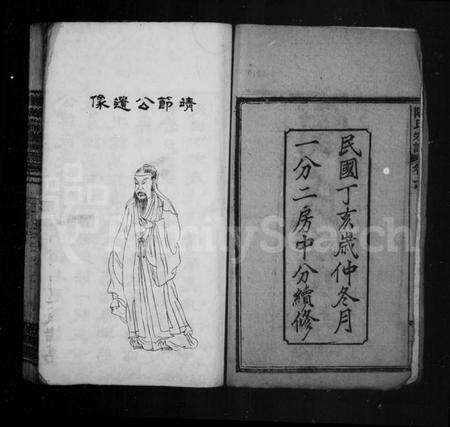 民國丁亥歲仲冬月
一分二房中分續修
靖節公遺像
FamilySearch